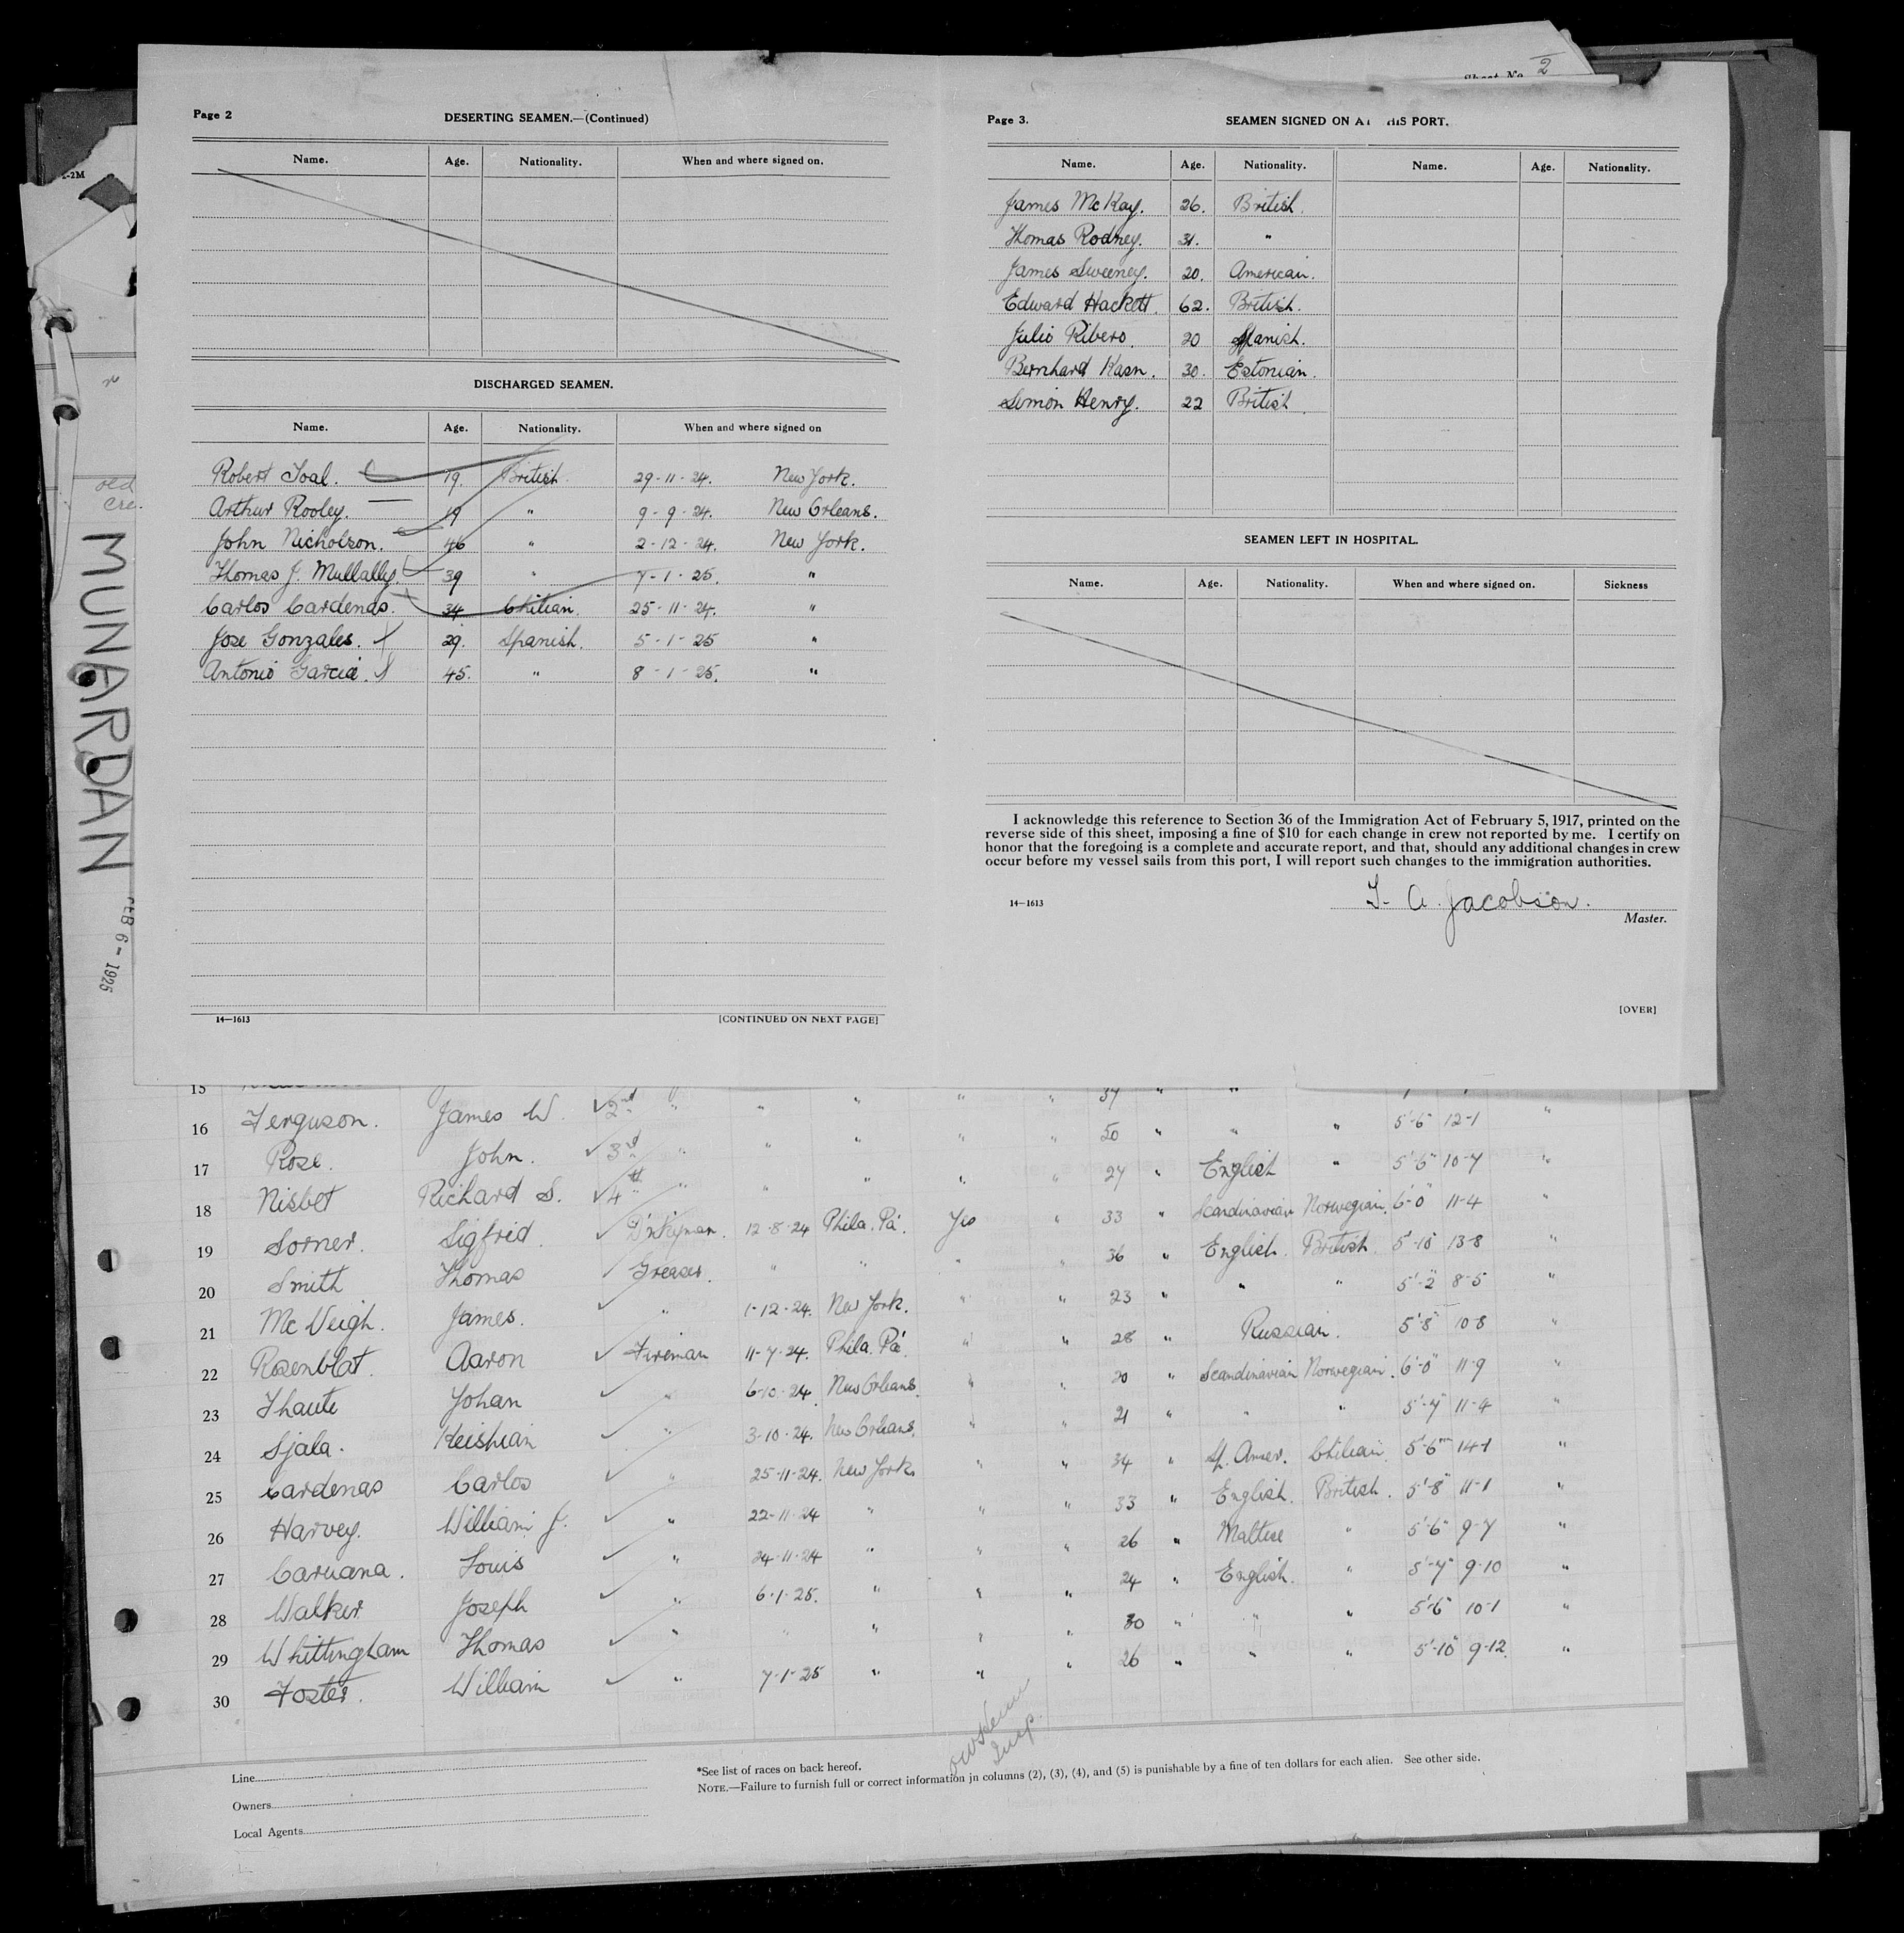 Sheet No. 2
Page 2
DESERTING SEAMEN.—(Continued)
Name. Age. Nationality. When and where signed on.
DISCHARGED SEAMEN.
Name. Age. Nationality. When and where signed on
Robert Toal. 19. British. 29-11-24. New York.
Arthur Rooley. 19 " 9-9-24. New Orleans.
John Nicholson. 46 " 2-12-24. New York.
Thomas J. Mullally. 39 " 7-1-25. "
Carlos Cardenas. 34 Chilian. 25-11-24. "
Jose Gonzales. 29. Spanish. 5-1-25 "
Antonio Garcia. 45. " 8-1-25. "
14—1613 [CONTINUED ON NEXT PAGE]
Page 3.
SEAMEN SIGNED ON AT HIS PORT.
Name. Age. Nationality. Name. Age. Nationality.
James McKay. 26. British.
Thomas Rodney. 31. "
James Sweeney. 20. American.
Edward Hackett. 62. British.
Julio Ribero. 20 Spanish.
Bernhard Kasn. 30. Estonian.
Simon Henry. 22 British.
SEAMEN LEFT IN HOSPITAL.
Name. Age. Nationality. When and where signed on. Sickness
I acknowledge this reference to Section 36 of the Immigration Act of February 5, 1917, printed on the
reverse side of this sheet, imposing a fine of $10 for each change in crew not reported by me. I certify on
honor that the foregoing is a complete and accurate report, and that, should any additional changes in crew
occur before my vessel sails from this port, I will report such changes to the immigration authorities.
14—1613
T. A. Jacobson.
Master.
[OVER]
-2M
old
cre.
MUNARDAN
FEB 6 - 1925
15 37 " "
16 Ferguson. James W. 2nd " " " " " 50 " " " 5'-6" 12-1 "
17 Rose. John. 3rd " " " " " 27 " English " 5'-6" 10-7 "
18 Nisbet Richard S. 4th " " " " " 33 " Scandinavian Norwegian. 6'-0" 11-4 "
19 Sorner. Sigfrid. D'nkyman. 12-8-24 Phila. Pa. Yes " 36 " English. British. 5'-10" 13-8 "
20 Smith Thomas Greaser. " " " " 23 " " " 5'-2" 8-5 "
21 McVeigh. James. " 1-12-24. New York. " " 28 " Russian. 5'-8" 10-8 "
22 Rosenblat. Aaron Fireman 11-7-24. Phila. Pa. " " 20 " Scandinavian Norwegian. 6'-0" 11-9 "
23 Thaute Johan " 6-10-24. New Orleans. " " 21 " " " 5'-7" 11-4 "
24 Sjala. Keishian " 3-10-24. New Orleans. " " 34 " Sp. Amer. Chilian. 5'-6" 14-1 "
25 Cardenas Carlos " 25-11-24. New York " " 33 " English. British. 5'-8" 11-1 "
26 Harvey. William J. " 22-11-24 " " " 26 " Maltese " 5'-6" 9-7 "
27 Caruana. Louis " 24-11-24 " " " 24 " English. " 5'-7" 9-10 "
28 Walker Joseph " 6-1-25. " " " 30 " " " 5'-6" 10-1 "
29 Whittingham Thomas " " " " " 26 " " " 5'-10" 9-12. "
30 Foster. William " 7-1-25 " " "
Insp.
Line
Owners
Local Agents
*See list of races on back hereof.
NOTE.—Failure to furnish full or correct information in columns (2), (3), (4), and (5) is punishable by a fine of ten dollars for each alien. See other side.